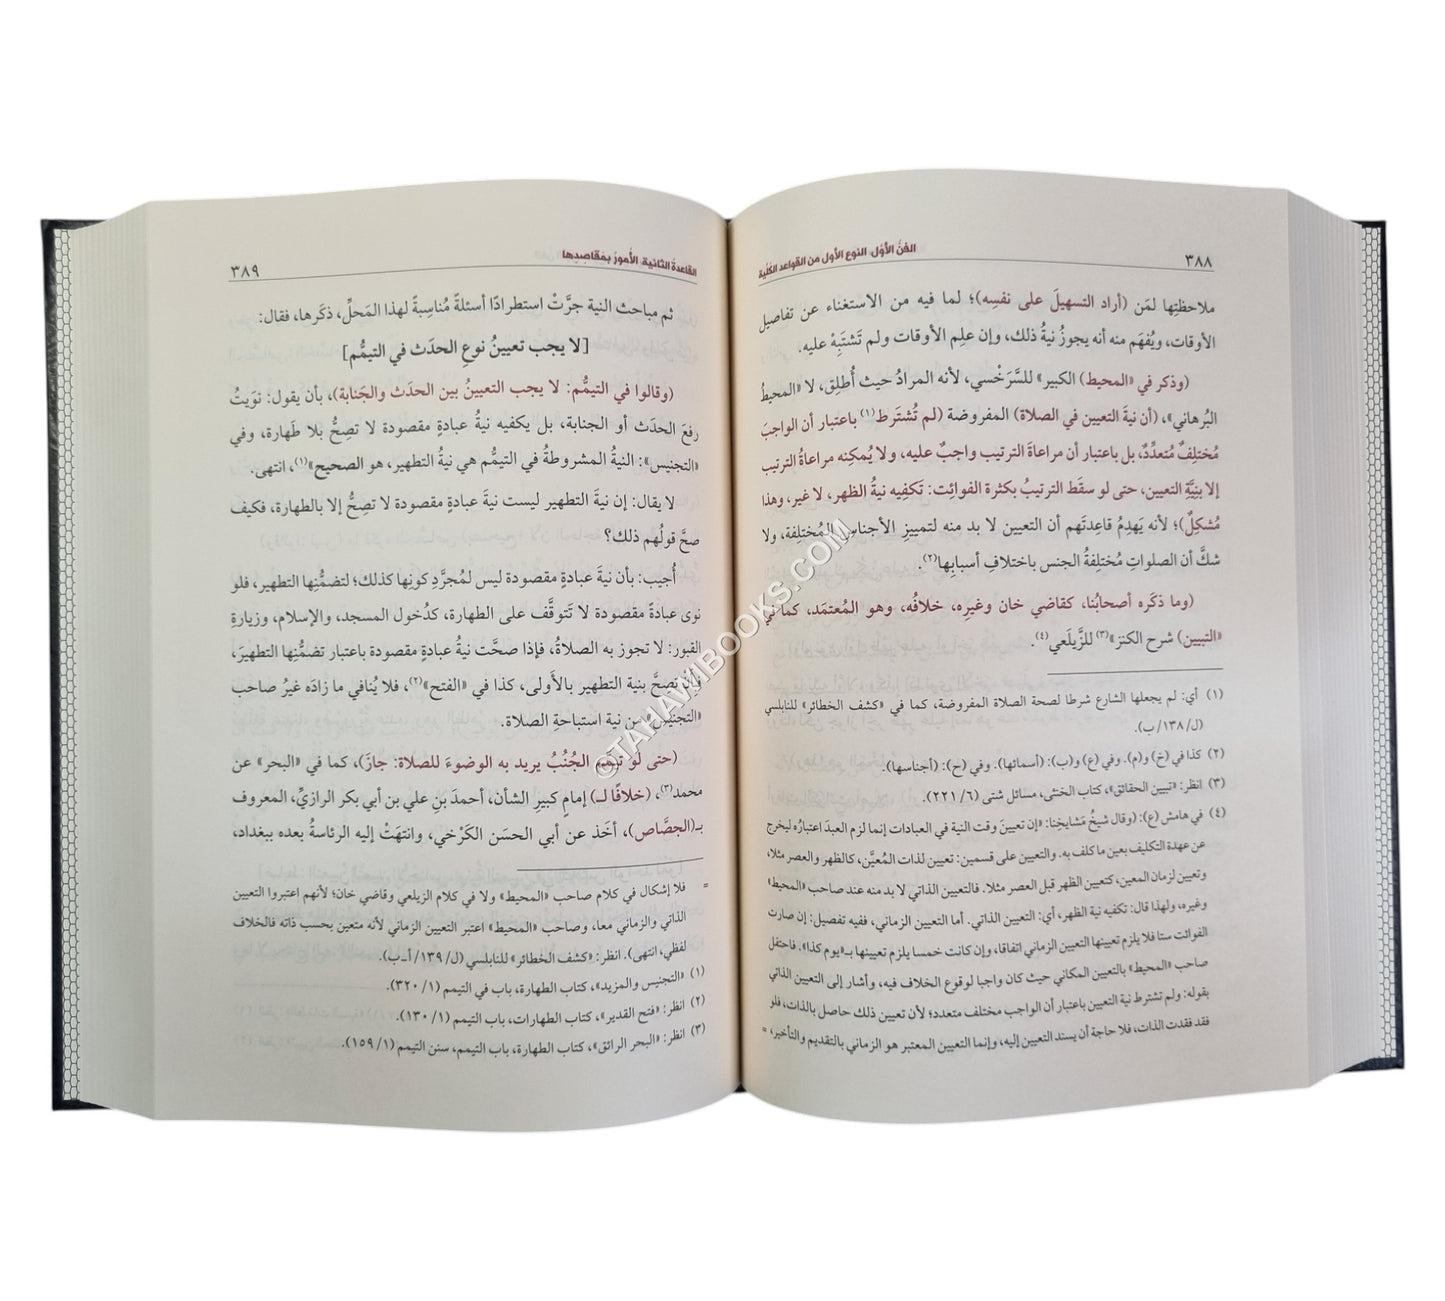 ٣٨٨
الفنُّ الأوَّل: النوع الأول من القواعد الكلّية
ملاحظتِها لمَن (أراد التسهيلَ على نفسِه)؛ لما فيه من الاستغناء عن تفاصيل
الأوقات، ويُفهَم منه أنه يجوزُ نيةُ ذلك، وإن علِم الأوقات ولم تَشتَبِهْ عليه.
(وذكر في «المحيط) الكبير» للسَّرَخْسي، لأنه المرادُ حيث أُطلِق، لا «المحيطُ
البُرهاني»، (أن نيةَ التعيين في الصلاة) المفروضة (لم تُشتَرط(١) باعتبار أن الواجبَ
مُختلِفٌ مُتعدِّدٌ، بل باعتبار أن مراعاةَ الترتيب واجبٌ عليه، ولا يُمكِنه مراعاةُ الترتيب
إلا بنِيَّةِ التعيين، حتى لو سقَط الترتيبُ بكثرة الفوائت: تَكفِيه نيةُ الظهر، لا غير، وهذا
مُشكِلٌ)؛ لأنه يَهدِمُ قاعِدتَهم أن التعيين لا بد منه لتمييزِ الأجناسِ المُختلِفة، ولا
شكَّ أن الصلواتِ مُختلِفةُ الجنس باختلافِ أسبابِها(٢).
(وما ذكَره أصحابُنا، كقاضي خان وغيرِه، خلافُه، وهو المُعتمَد، كما في
«التبيين) شرح الكنز»(٣) للزَّيلَعي(٤).
(١) أي: لم يجعلها الشارع شرطا لصحة الصلاة المفروضة، كما في «كشف الخطائر» للنابلسي
(ل/ ١٣٨/ ب).
(٢) كذا في (خ) و(م). وفي (ع) و(ب): (أسمائها). وفي (ح): (أجناسها).
(٣) انظر: «تبيين الحقائق»، كتاب الخنثى، مسائل شتى (٦/ ٢٢١).
(٤) في هامش (ع): (وقال شيخُ مَشايخِنا: «إن تعيينَ وقت النية في العبادات إنما لزم العبدَ اعتبارُه ليخرج
عن عهدة التكليف بعين ما كلف به. والتعيين على قسمين: تعيين لذات المُعيَّن، كالظهر والعصر مثلا،
وتعيين لزمان المعين، كتعيين الظهر قبل العصر مثلا. فالتعيين الذاتي لا بد منه عند صاحب «المحيط»
وغيره، ولهذا قال: تكفيه نية الظهر، أي: التعيين الذاتي. أما التعيين الزماني، ففيه تفصيل: إن صارت
الفوائت ستا فلا يلزم تعيينها التعيين الزماني اتفاقا، وإن كانت خمسا يلزم تعيينها بـ«يوم كذا». فاحتفل
صاحب «المحيط» بالتعيين المكاني حيث كان واجبا لوقوع الخلاف فيه، وأشار إلى التعيين الذاتي
بقوله: ولم تشترط نية التعيين باعتبار أن الواجب مختلف متعدد؛ لأن تعيين ذلك حاصل بالذات، فلو
فقد فقدت الذات، فلا حاجة أن يسند التعيين إليه، وإنما التعيين المعتبر هو الزماني بالتقديم والتأخير، =
القاعدةُ الثانية: الأمورُ بمَقاصِدِها
٣٨٩
ثم مباحث النية جرَّتْ استطرادًا أسئلةً مُناسِبةً لهذا المَحلِّ، ذكَرها، فقال:
[لا يجب تعيينُ نوعِ الحدَث في التيمُّم]
(وقالوا في التيمُّم: لا يجب التعيينُ بين الحدَث والجَنابة)، بأن يقول: نوَيتُ
رفعَ الحدَث أو الجنابة، بل يكفيه نيةُ عبادةٍ مقصودة لا تصِحُّ بلا طَهارة، وفي
«التجنيس»: النيةُ المشروطةُ في التيمُّم هي نيةُ التطهير، هو الصحيح»(١)، انتهى.
لا يقال: إن نيةَ التطهير ليست نيةَ عبادةٍ مقصودة لا تصِحُّ إلا بالطهارة، فكيف
صحَّ قولُهم ذلك؟
أُجيب: بأن نيةَ عبادةٍ مقصودة ليس لمُجرَّدِ كونِها كذلك؛ لتضمُّنِها التطهير، فلو
نوى عبادةً مقصودة لا تَتوقَّف على الطهارة، كدُخول المسجد، والإسلام، وزيارةِ
القبور: لا تجوز به الصلاةُ، فإذا صحَّت نيةُ عبادةٍ مقصودة باعتبار تضمُّنِها التطهيرَ،
فلأن تصِحَّ بنية التطهير بالأَولى، كذا في «الفتح»(٢)، فلا يُنافي ما زادَه غيرُ صاحب
«التجنيس» من نية استباحةِ الصلاة.
(حتى لو تيمَّم الجُنُبُ يريد به الوضوءَ للصلاة: جازَ)، كما في «البحر» عن
محمد(٣)، (خلافًا لـ) إمامٍ كبيرِ الشأن، أحمدَ بنِ علي بن أبي بكر الرازيِّ، المعروف
بـ(الجصَّاص)، أخَذ عن أبي الحسَن الكَرْخي، وانتهَتْ إليه الرئاسةُ بعده ببغداد،
= فلا إشكال في كلام صاحب «المحيط» ولا في كلام الزيلعي وقاضي خان؛ لأنهم اعتبروا التعيين
الذاتي والزماني معا، وصاحب «المحيط» اعتبر التعيين الزماني لأنه متعين بحسب ذاته فالخلاف
لفظي، انتهى). انظر: «كشف الخطائر» للنابلسي (ل/ ١٣٩/ أ-ب).
(١) «التجنيس والمزيد»، كتاب الطهارة، باب في التيمم (١/ ٣٢٠).
(٢) انظر: «فتح القدير»، كتاب الطهارات، باب التيمم (١/ ١٣٠).
(٣) انظر: «البحر الرائق»، كتاب الطهارة، باب التيمم، سنن التيمم (١/ ١٥٩).
©TAHAWIBOOKS.COM